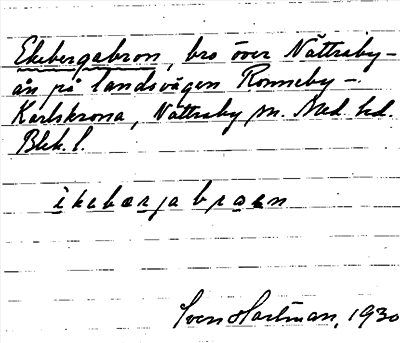 Ekebergabron, bro över Nättraby-
ån på landsvägen Ronneby -
Karlskrona, Nättraby sn. Med. hd.
Blek. l.
ikabærjabroen
Sven Hartman, 1930